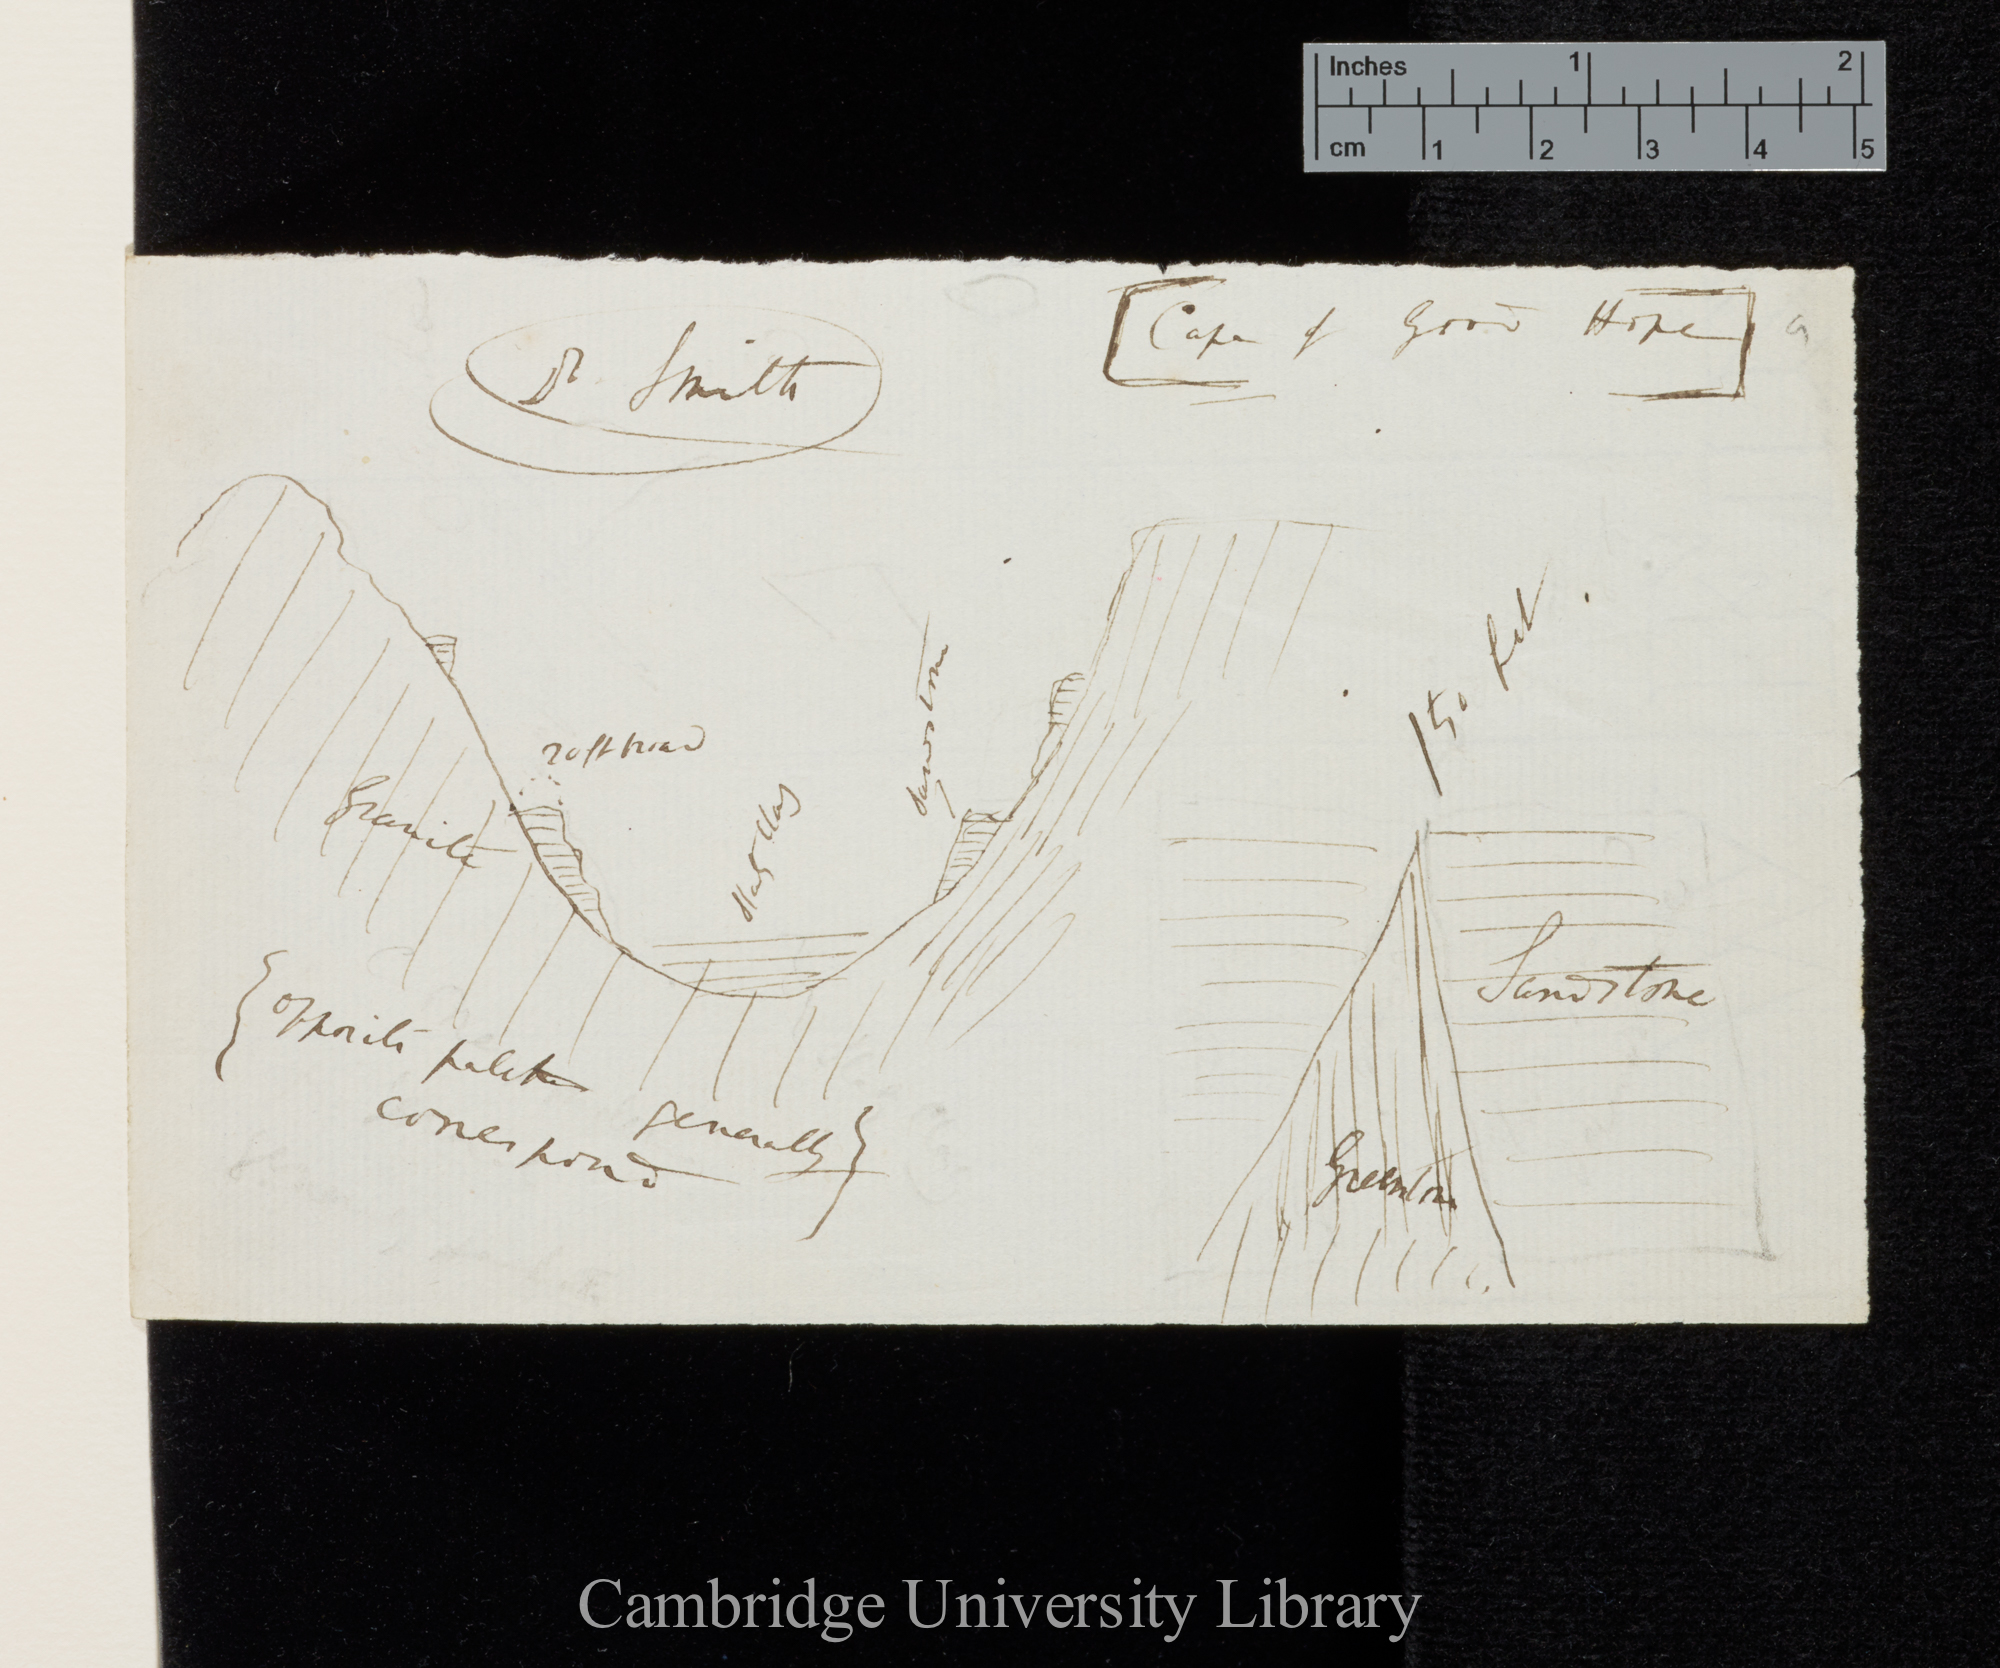 Inches 1 2
cm 1 2 3 4 5
Cape of Good Hope
a
Dr Smith
150 feet
Sandstone
20 ft broad
Granite
Sandstone
Greenstone
{opposite patches generally
correspond}
Cambridge University Library